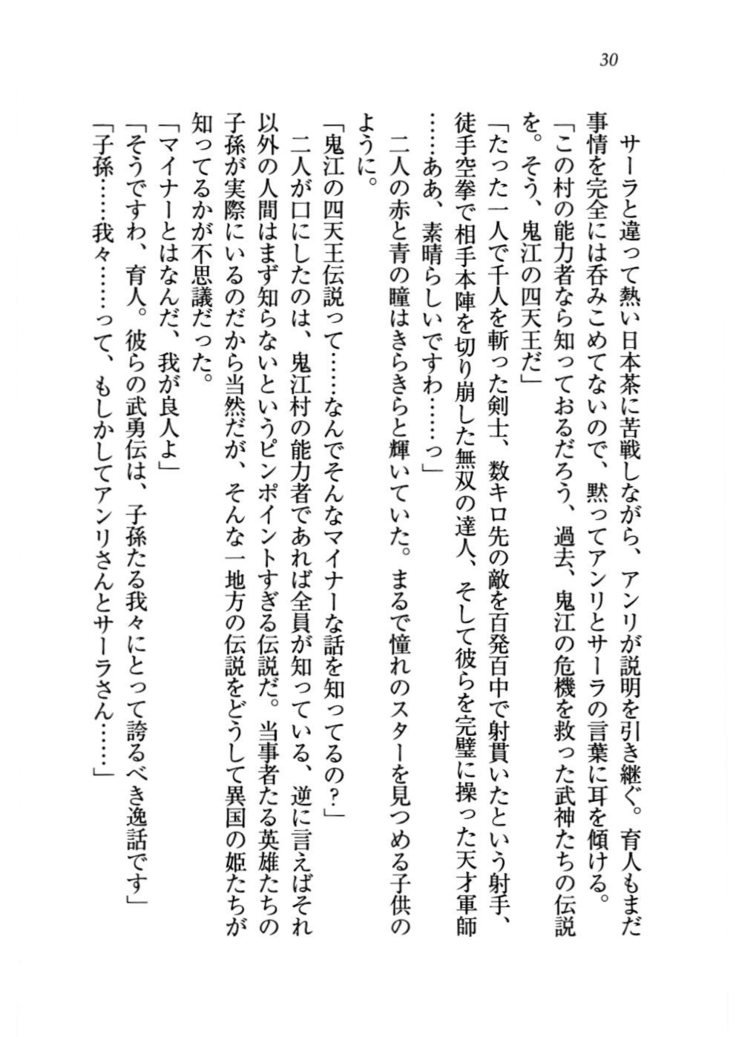 30
サーラと違って熱い日本茶に苦戦しながら、アンリが説明を引き継ぐ。育人もまだ
事情を完全には呑みこめてないので、黙ってアンリとサーラの言葉に耳を傾ける。
「この村の能力者なら知っておるだろう、過去、鬼江の危機を救った武神たちの伝説
を。そう、鬼江の四天王だ」
「たった一人で千人を斬った剣士、数キロ先の敵を百発百中で射貫いたという射手、
徒手空拳で相手本陣を切り崩した無双の達人、そして彼らを完璧に操った天才軍師
……ああ、素晴らしいですわ……っ」
二人の赤と青の瞳はきらきらと輝いていた。まるで憧れのスターを見つめる子供の
ように。
「鬼江の四天王伝説って……なんでそんなマイナーな話を知ってるの？」
二人が口にしたのは、鬼江村の能力者であれば全員が知っている、逆に言えばそれ
以外の人間はまず知らないというピンポイントすぎる伝説だ。当事者たる英雄たちの
子孫が実際にいるのだから当然だが、そんな一地方の伝説をどうして異国の姫たちが
知ってるかが不思議だった。
「マイナーとはなんだ、我が良人よ」
「そうですわ、育人。彼らの武勇伝は、子孫たる我々にとって誇るべき逸話です」
「子孫……我々……って、もしかしてアンリさんとサーラさん……」